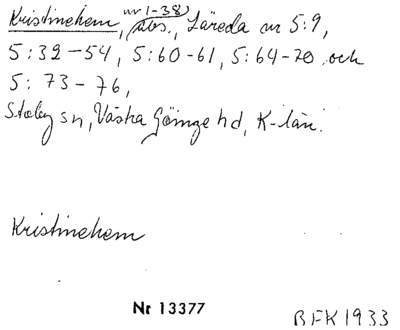 Kristinehem, nr 1-38) äbs., Läreda nr 5:9,
5:32-54, 5:60-61, 5:64-70 och
5: 73-76,
Stoby sn, Västra Göinge hd, K-län.
Kristinehem
Nr 13377
BEK 1933